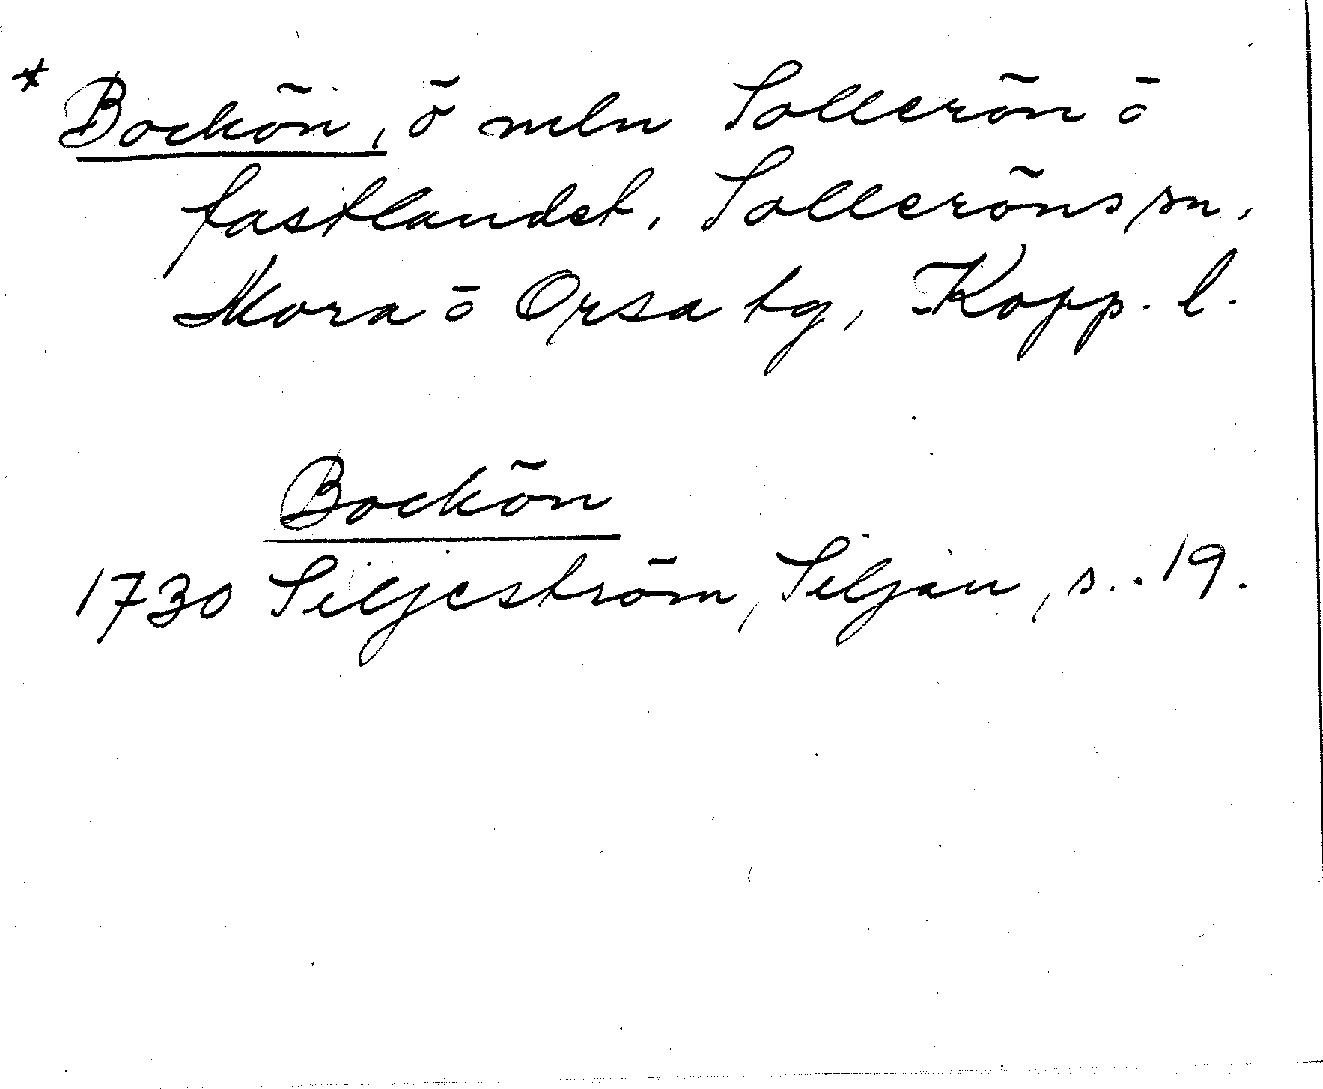 * Bockön, ö mln Sollerön o
fastlandet, Solleröns sn,
Mora o Orsa tg, Kopp. l.
Bockön
1730 Siljeström, Siljan, s. 19.